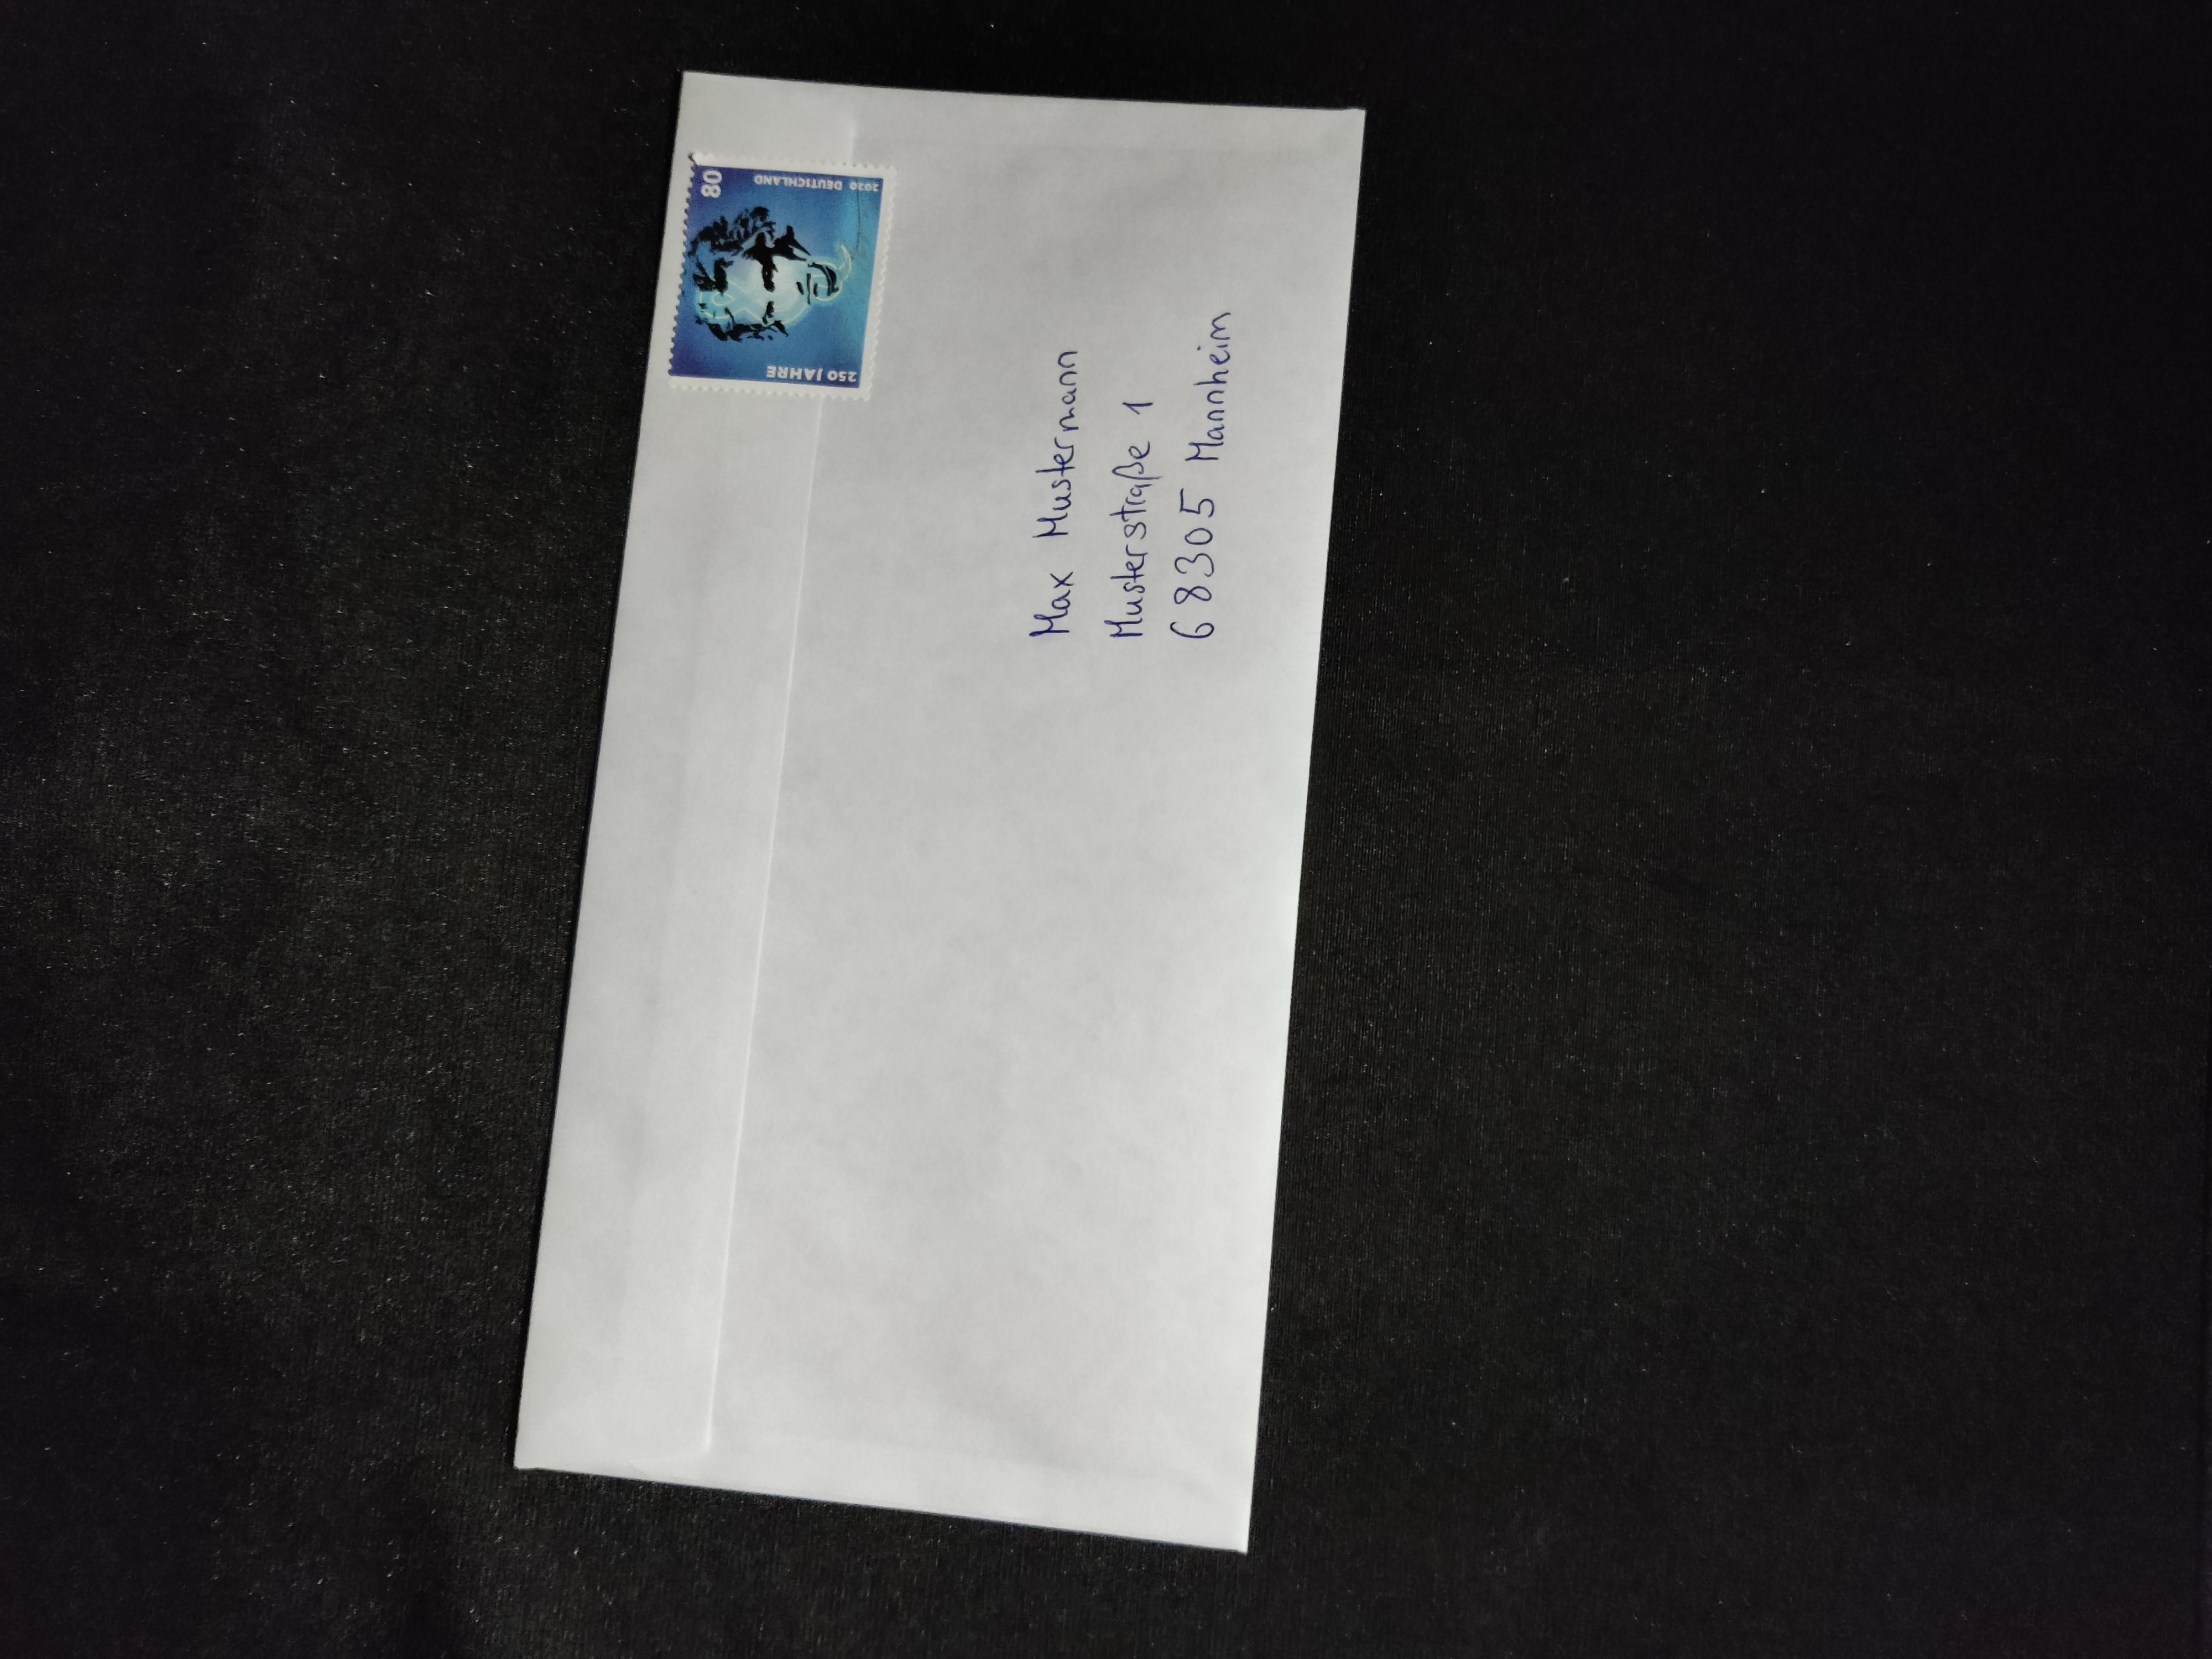 80
2020 DEUTSCHLAND
250 JAHRE
Max Mustermann
Musterstraße 1
68305 Mannheim